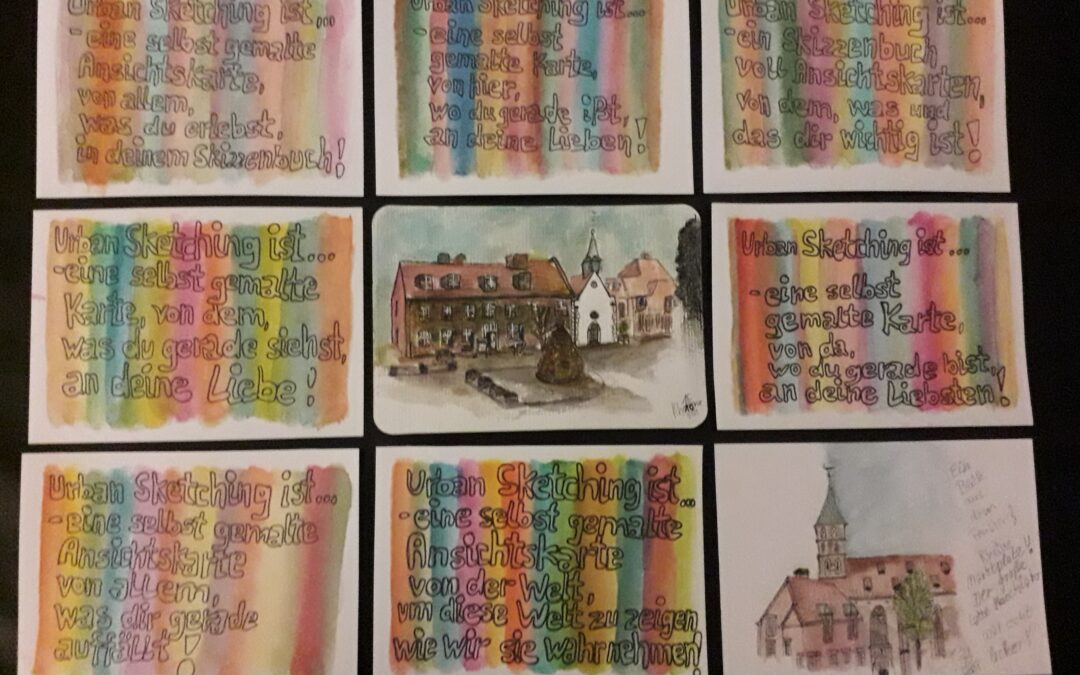 Urban Sketching ist...
- eine selbst gemalte
Ansichtskarte,
von allem,
was du erlebst,
in deinem Skizzenbuch!
Urban Sketching ist...
- eine selbst
gemalte Karte,
von hier,
wo du gerade ißt,
an deine Lieben!
Urban Sketching ist...
- ein Skizzenbuch
voll Ansichtskarten,
von dem, was und
das dir wichtig ist!
Urban Sketching ist...
- eine selbst gemalte
Karte, von dem,
was du gerade siehst,
an deine Liebe!
Urban Sketching ist...
- eine selbst
gemalte Karte,
von da,
wo du gerade bist,
an deine Liebsten!
Urban Sketching ist...
- eine selbst gemalte
Ansichtskarte
von allem,
was dir gerade
auffällt!
Urban Sketching ist...
- eine selbst gemalte
Ansichtskarte
von der Welt,
um diese Welt zu zeigen
wie wir sie wahrnehmen!